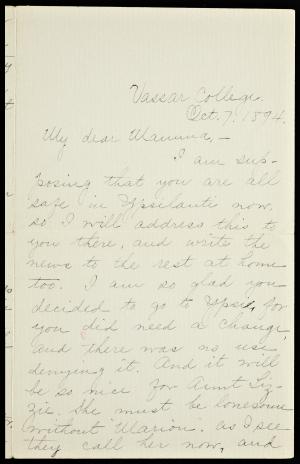 Vassar College.
Oct. 7, 1894.
My dear Mamma,—
I am sup-
posing that you are all
safe in Ypsilanti now,
so I will address this to
you there, and write the
news to the rest at home
too. I am so glad you
decided to go to Ypsi, for
you did need a change,
and there was no use
denying it. And it will
be so nice for Aunt Liz-
zie. She must be lonesome
without Marion, as I see
they call her now, and